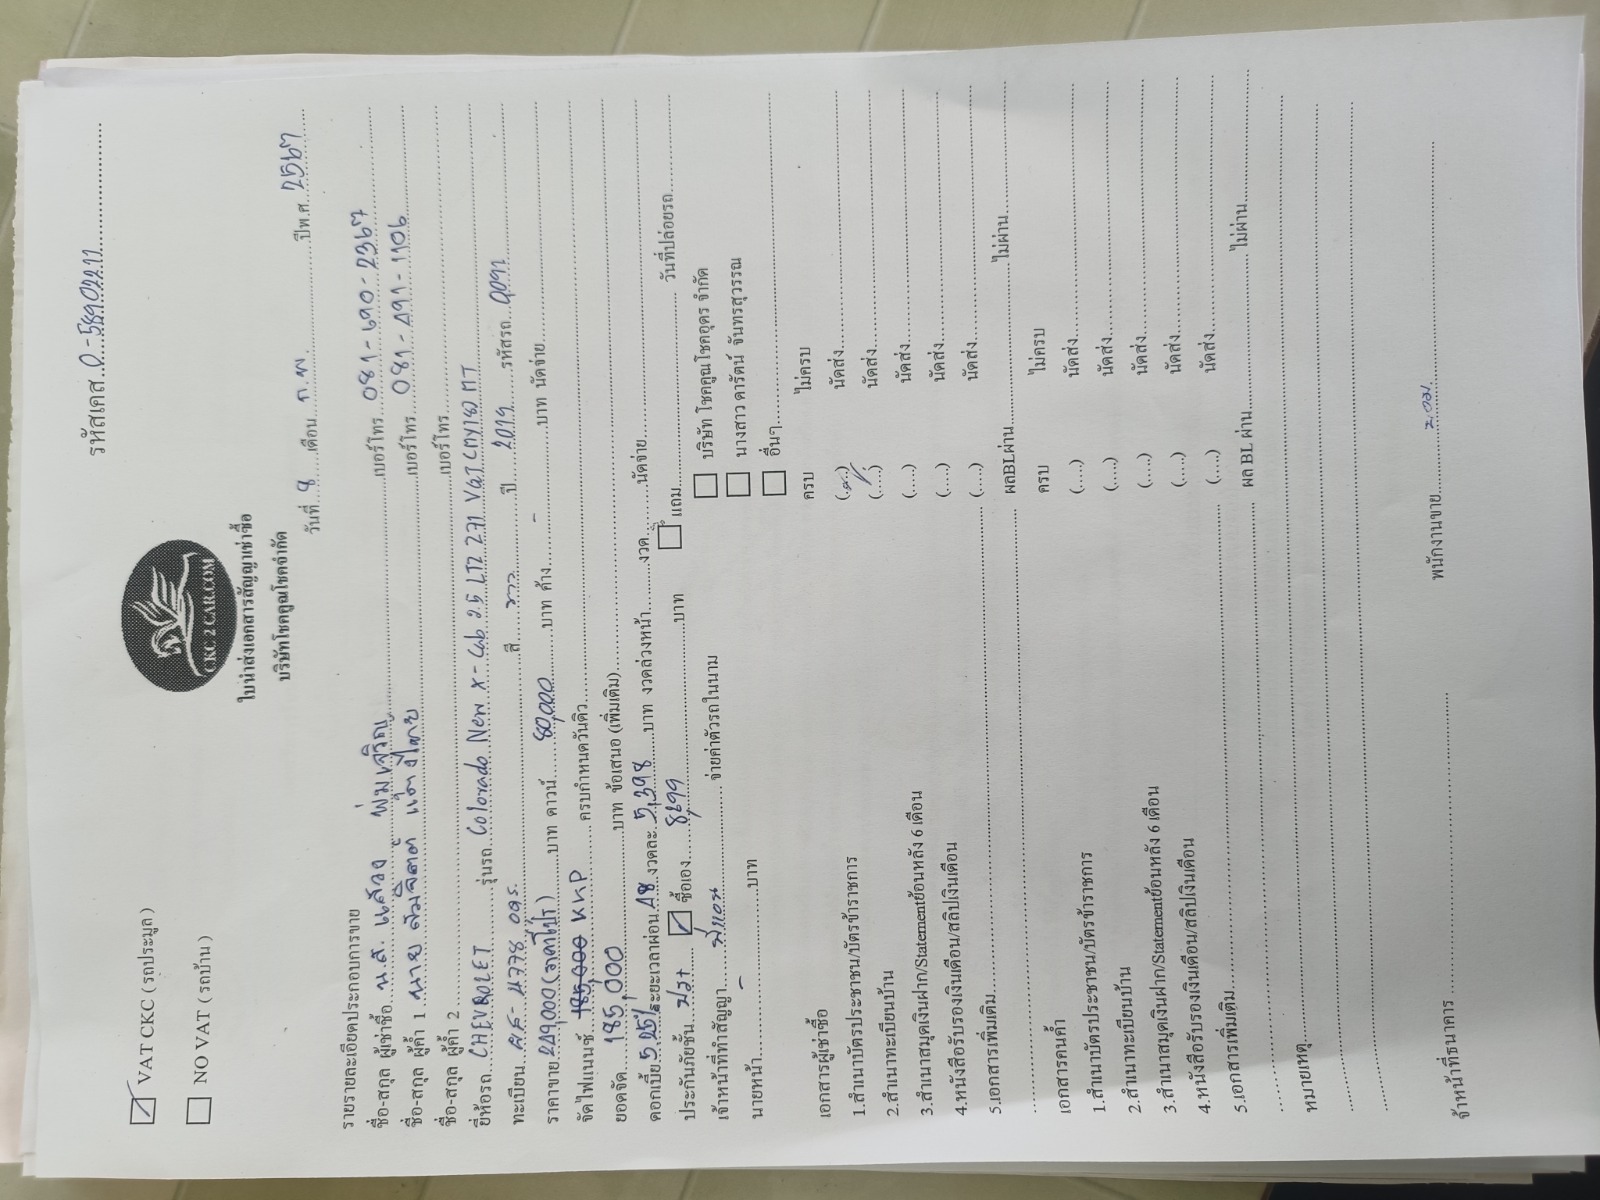 รหัสเคส
VAT CKC ( รถประมูล )
NO VAT ( รถบ้าน )
CKC 2 CAR.COM
ใบนำส่งเอกสารสัญญาเช่าซื้อ
บริษัทโชคคูณโชคจำกัด
วันที่ 8 เดือน ก.พ. ปีพ.ศ. 2567
รายรายละเอียดประกอบการขาย
ชื่อ-สกุล ผู้เช่าซื้อ น.ส. แสวง พุ่มเจริญ เบอร์โทร 081-690-2367
ชื่อ-สกุล ผู้ค้ำ 1 นาย สมจิตต์ เบอร์โทร 081-491-1106
ชื่อ-สกุล ผู้ค้ำ 2 เบอร์โทร
ยี่ห้อรถ CHEVROLET รุ่นรถ Colorado New X-Cab 2.5 LTZ Z71 VGT MT
ทะเบียน สี ขาว ปี 2019 รหัสรถ
ราคาขาย 249,000 บาท ดาวน์ 80,000 บาท ค้าง - บาท นัดจ่าย
จัดไฟแนนซ์ 185,000 KKP ครบกำหนดวันคิว
ยอดจัด 185,000 บาท ข้อเสนอ (เพิ่มเติม)
ดอกเบี้ย 5.25% ระยะเวลาผ่อน 48 งวดละ 5,398 บาท งวดล่วงหน้า งวด นัดจ่าย
ประกันภัยชั้น ซื้อเอง 8,699 บาท แถม วันที่ปล่อยรถ
เจ้าหน้าที่ทำสัญญา จ่ายค่าตัวรถในนาม บริษัท โชคคูณโชคอุดร จำกัด
นายหน้า - บาท นางสาว ดารัตน์ จันทรสุวรรณ
อื่นๆ
เอกสารผู้เช่าซื้อ ครบ ไม่ครบ
1.สำเนาบัตรประชาชน/บัตรข้าราชการ (....) นัดส่ง
2.สำเนาทะเบียนบ้าน (....) นัดส่ง
3.สำเนาสมุดเงินฝาก/Statementย้อนหลัง 6 เดือน (....) นัดส่ง
4.หนังสือรับรองเงินเดือน/สลิปเงินเดือน (....) นัดส่ง
5.เอกสารเพิ่มเติม (....) นัดส่ง
ผลBLผ่าน ไม่ผ่าน
เอกสารคนค้ำ ครบ ไม่ครบ
1.สำเนาบัตรประชาชน/บัตรข้าราชการ (....) นัดส่ง
2.สำเนาทะเบียนบ้าน (....) นัดส่ง
3.สำเนาสมุดเงินฝาก/Statementย้อนหลัง 6 เดือน (....) นัดส่ง
4.หนังสือรับรองเงินเดือน/สลิปเงินเดือน (....) นัดส่ง
5.เอกสารเพิ่มเติม (....) นัดส่ง
ผล BL ผ่าน ไม่ผ่าน
หมายเหตุ
จ้าหน้าที่ธนาคาร พนักงานขาย